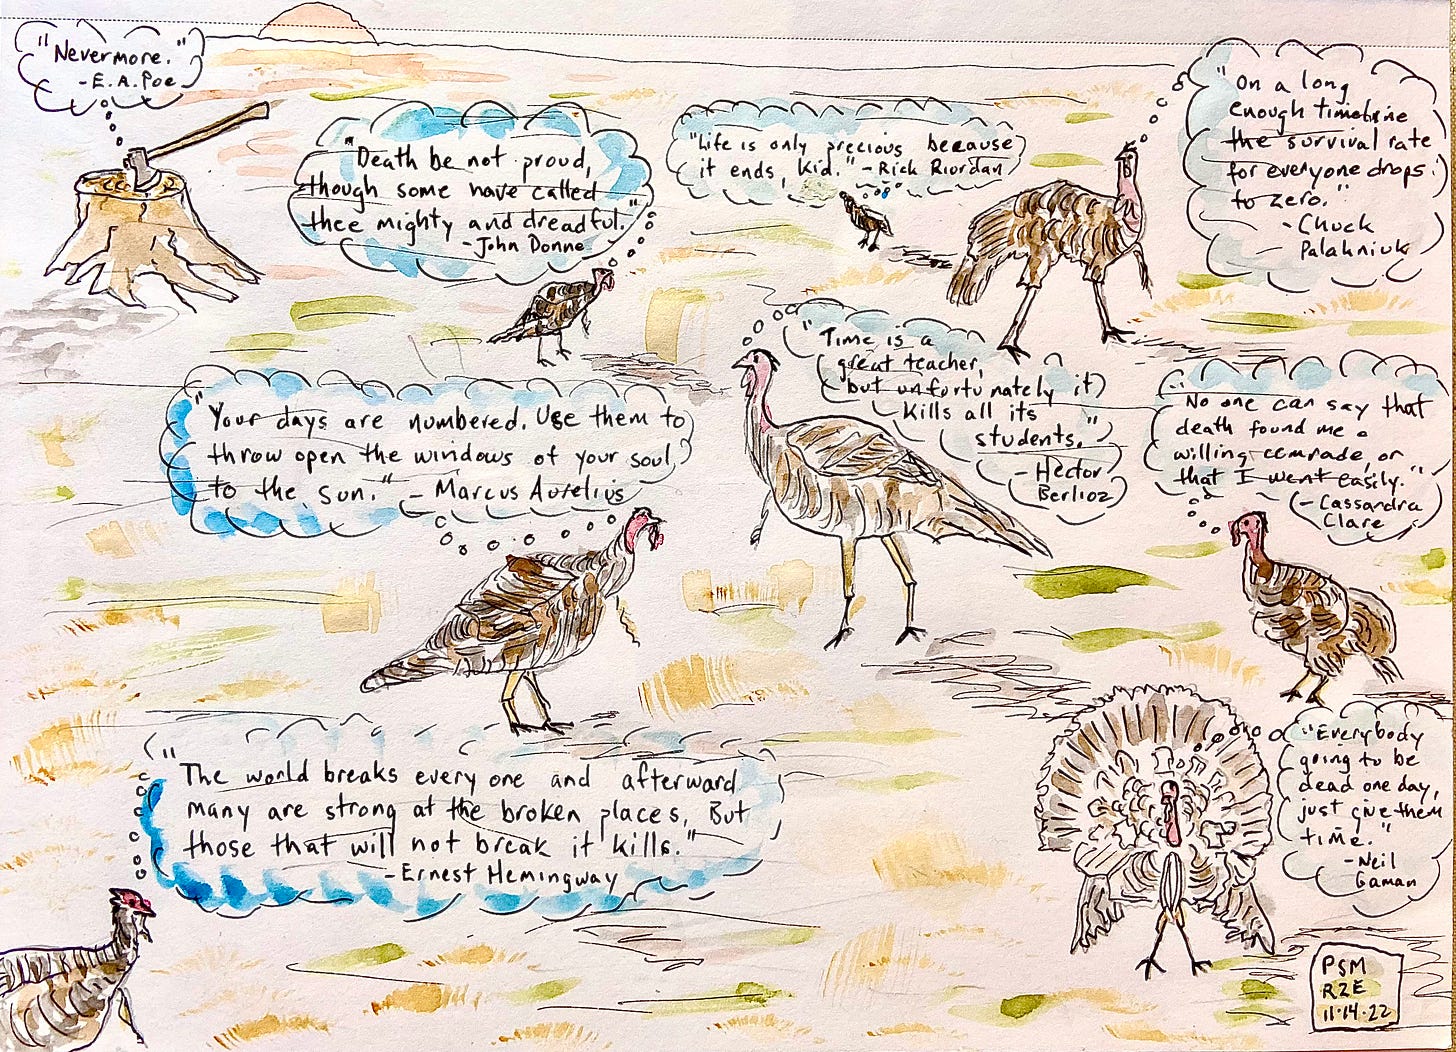 "Nevermore."
-E.A.Poe
"Death be not proud,
though some have called
thee mighty and dreadful."
-John Donne
"Life is only precious because
it ends, kid." -Rick Riordan
"On a long
enough timeline
the survival rate
for everyone drops
to zero."
-Chuck
Palahniuk
"Time is a
great teacher,
but unfortunately it
kills all its
students."
-Hector
Berlioz
"No one can say that
death found me a
willing comrade, or
that I went easily."
-Cassandra
Clare
"Your days are numbered. Use them to
throw open the windows of your soul
to the sun." - Marcus Aurelius
"The world breaks every one and afterward
many are strong at the broken places, But
those that will not break it kills."
-Ernest Hemingway
"Everybody
going to be
dead one day,
just give them
time."
-Neil
Gaman
PSM
RZE
11·14·22